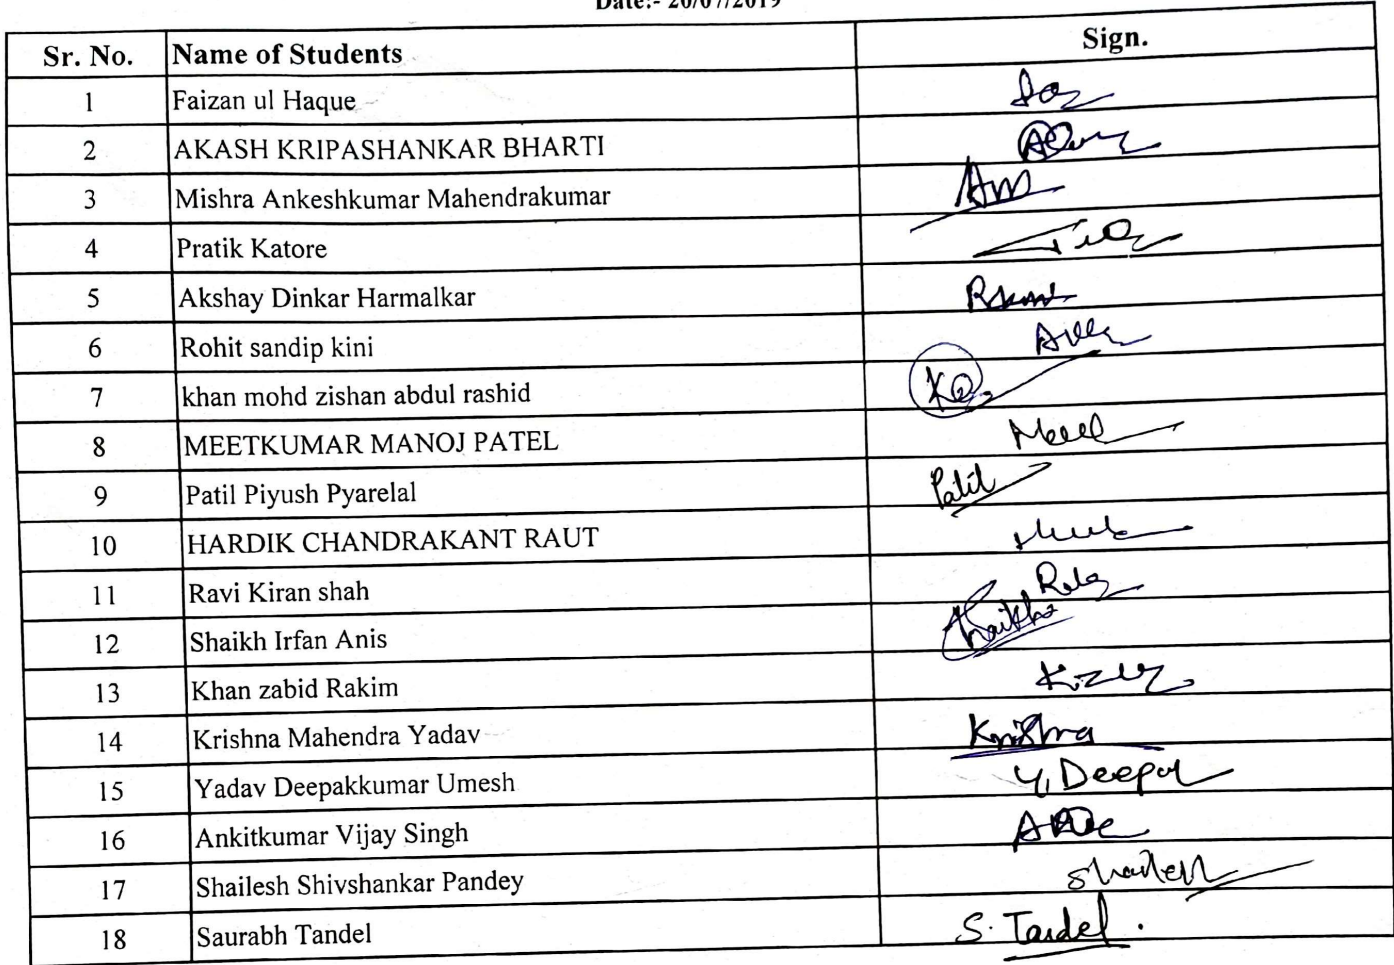 Date:- 20/07/2019
Sr. No. Name of Students Sign.
1 Faizan ul Haque
2 AKASH KRIPASHANKAR BHARTI
3 Mishra Ankeshkumar Mahendrakumar
4 Pratik Katore
5 Akshay Dinkar Harmalkar
6 Rohit sandip kini
7 khan mohd zishan abdul rashid
8 MEETKUMAR MANOJ PATEL
9 Patil Piyush Pyarelal Patil
10 HARDIK CHANDRAKANT RAUT
11 Ravi Kiran shah
12 Shaikh Irfan Anis
13 Khan zabid Rakim
14 Krishna Mahendra Yadav Krishna
15 Yadav Deepakkumar Umesh
16 Ankitkumar Vijay Singh
17 Shailesh Shivshankar Pandey
18 Saurabh Tandel S. Tandel.